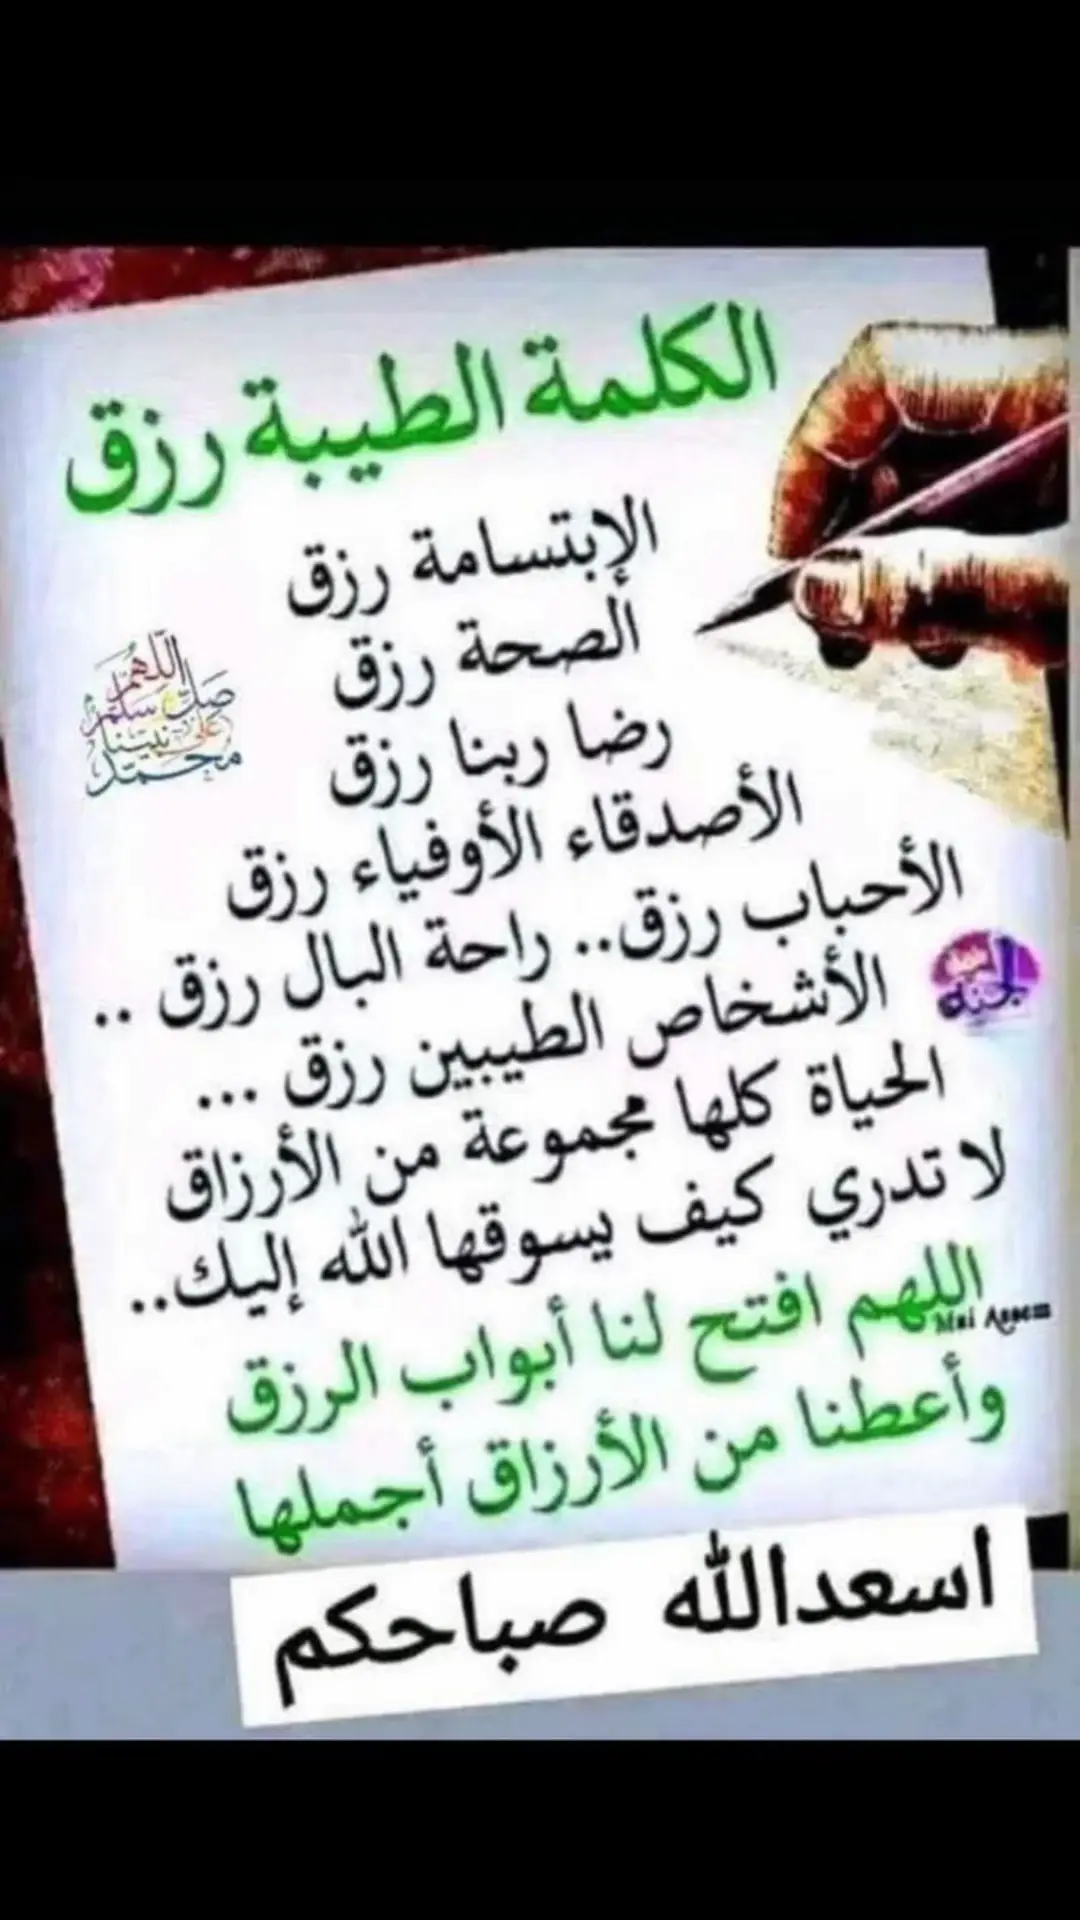 الكلمة الطيبة رزق
الإبتسامة رزق
الصحة رزق
رضا ربنا رزق
اللهم
صل وسلم
على نبينا
محمد
الأصدقاء الأوفياء رزق
الأحباب رزق.. راحة البال رزق ..
الأشخاص الطيبين رزق ...
الجنة
الحياة كلها مجموعة من الأرزاق
لا تدري كيف يسوقها الله إليك..
اللهم افتح لنا أبواب الرزق
Mai Assem
وأعطنا من الأرزاق أجملها
اسعدالله صباحكم